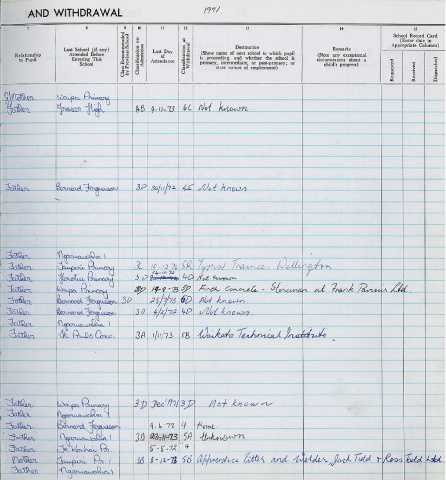 AND WITHDRAWAL 1971
7 8 9 10 11 12 13 14 15
Relationship to Pupil
Last School (if any) Attended Before Entering This School
Class Recommended by Previous School
Classification on Admission
Last Day of Attendance
Classification at Withdrawal
Destination
(Show name of next school to which pupil is proceeding, and whether the school is primary, intermediate, or post-primary; or state nature of employment)
Remarks
(Note any exceptional circumstances about a child's progress)
School Record Card
(Enter date in Appropriate Columns)
Requested
Received
Despatched
Mother Waipa Primary
Father Fraser High 4B 9.11.73 6C Not known
Father Bernard Fergusson 3D 30/11/72 4E Not known
Father Ngaruawahia 1
Father Taupiri Primary 5R Typist Trainee - Wellington
Father Primary 3D 4D Not known
Father Waipa Primary 3D Firth Concrete - Storeman at Frank
Father Bernard Fergusson 3D 25/7/73 6D Not known
Father Bernard Fergusson 3D 4/2/72 4D Not known.
Father Ngaruawahia 1
Father 3A 1/11/73 5B Waikato Technical Institute.
Father Waipa Primary 3D Dec '71 3D Not known
Father Ngaruawahia 1
Father Bernard Fergusson 9.6.72 4 Home
Father Ngaruawahia 1 3D 5A Unknown
Father 5-5-72 4
Mother Taupiri 3B 8-12-73 5B Apprentice Fitter and Welder Jack Tidd + Ross Todd Ltd
Father Ngaruawahia 1